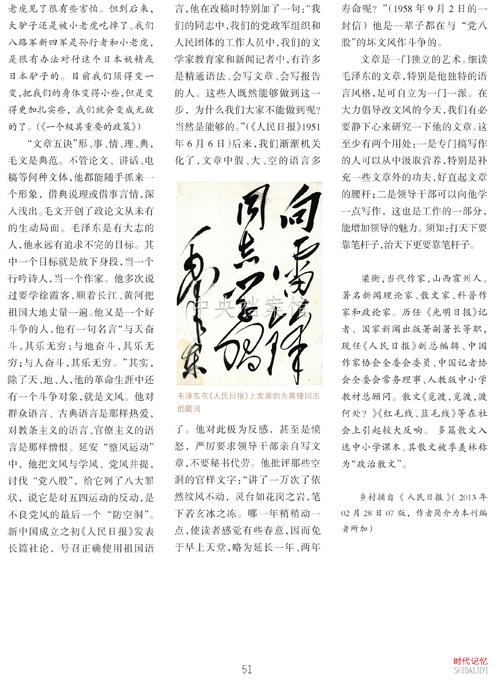 老虎见了很有些害怕。但到后来,
大驴子还是被小老虎吃掉了。我们
八路军新四军是孙行者和小老虎,
是很有办法对付这个日本妖精或
日本驴子的。目前我们须得变一
变,把我们的身体变得小些,但是变
得更加扎实些,我们就会变成无敌
的了。(《一个极其重要的政策》)
“文章五诀”形、事、情、理、典,
毛文是典范。不管论文、讲话、电
稿等何种文体,他都能随手抓来一
个形象,借典说理或借事言情,深
入浅出。毛文开创了政论文从未有
的生动局面。毛泽东是有大志的
人,他永远有追求不完的目标。其
中一个目标就是放下身段,当一个
行吟诗人,当一个作家。他多次说
过要学徐霞客,顺着长江、黄河把
祖国大地丈量一遍。他又是一个好
斗争的人,他有一句名言“与天奋
斗,其乐无穷;与地奋斗,其乐无
穷;与人奋斗,其乐无穷。”其实,
除了天、地、人,他的革命生涯中还
有一个斗争对象,就是文风。他对
群众语言、古典语言是那样热爱,
对教条主义的语言、官僚主义的语
言是那样憎恨。延安“整风运动”
中,他把文风与学风、党风并提,
讨伐“党八股”,给它列了八大罪
状,说它是对五四运动的反动,是
不良党风的最后一个“防空洞”。
新中国成立之初《人民日报》发表
长篇社论,号召正确使用祖国语
言,他在改稿时特别加了一句:“我
们的同志中,我们的党政军组织和
人民团体的工作人员中,我们的文
学家教育家和新闻记者中,有许多
是精通语法、会写文章、会写报告
的人。这些人既然能够做到这一
步,为什么我们大家不能做到呢?
当然是能够的。”(《人民日报》1951
年6月6日)后来,我们渐渐机关
化了,文章中假、大、空的语言多
向雷锋
同志学习
毛泽东
中央档案馆
毛泽东在《人民日报》上发表的为雷锋同志
的题词
了。他对此极为反感,甚至是愤
怒,严厉要求领导干部亲自写文
章,不要秘书代劳。他批评那些空
洞的官样文字:“讲了一万次了依
然纹风不动,灵台如花岗之岩,笔
下若玄冰之冻。哪一年稍稍动一
点,使读者感觉有些春意,因而免
于早上天堂,略为延长一年、两年
寿命呢?”(1958年9月2日的一
封信)他是一辈子都在与“党八
股”的坏文风作斗争的。
文章是一门独立的艺术。细读
毛泽东的文章,特别是他独特的语
言风格,足可自立为一门一派。在
大力倡导改文风的今天,我们有必
要静下心来研究一下他的文章。这
至少有两个用处:一是专门搞写作
的人可以从中汲取营养,特别是补
充一些文章外的功夫,好直起文章
的腰杆;二是领导干部可以向他学
一点写作,这也是工作的一部分,
能增加领导的魅力。须知:打天下要
靠笔杆子,治天下更要靠笔杆子。
梁衡,当代作家,山西霍州人。
著名新闻理论家、散文家、科普作
家和政论家。历任《光明日报》记
者、国家新闻出版署副署长等职,
现任《人民日报》副总编辑、中国
作家协会全委会委员、中国记者协
会全委会常务理事、人教版中小学
教材总顾问。散文《觅渡,觅渡,渡
何处?》《红毛线、蓝毛线》等在社
会上引起较大反响。多篇散文入
选中小学课本。其散文被季羡林称
为“政治散文”。
乡村摘自《人民日报》(2013年
02月28日07版,作者简介为本刊编
者所加)
51
时代记忆
SHIDAIJIYI